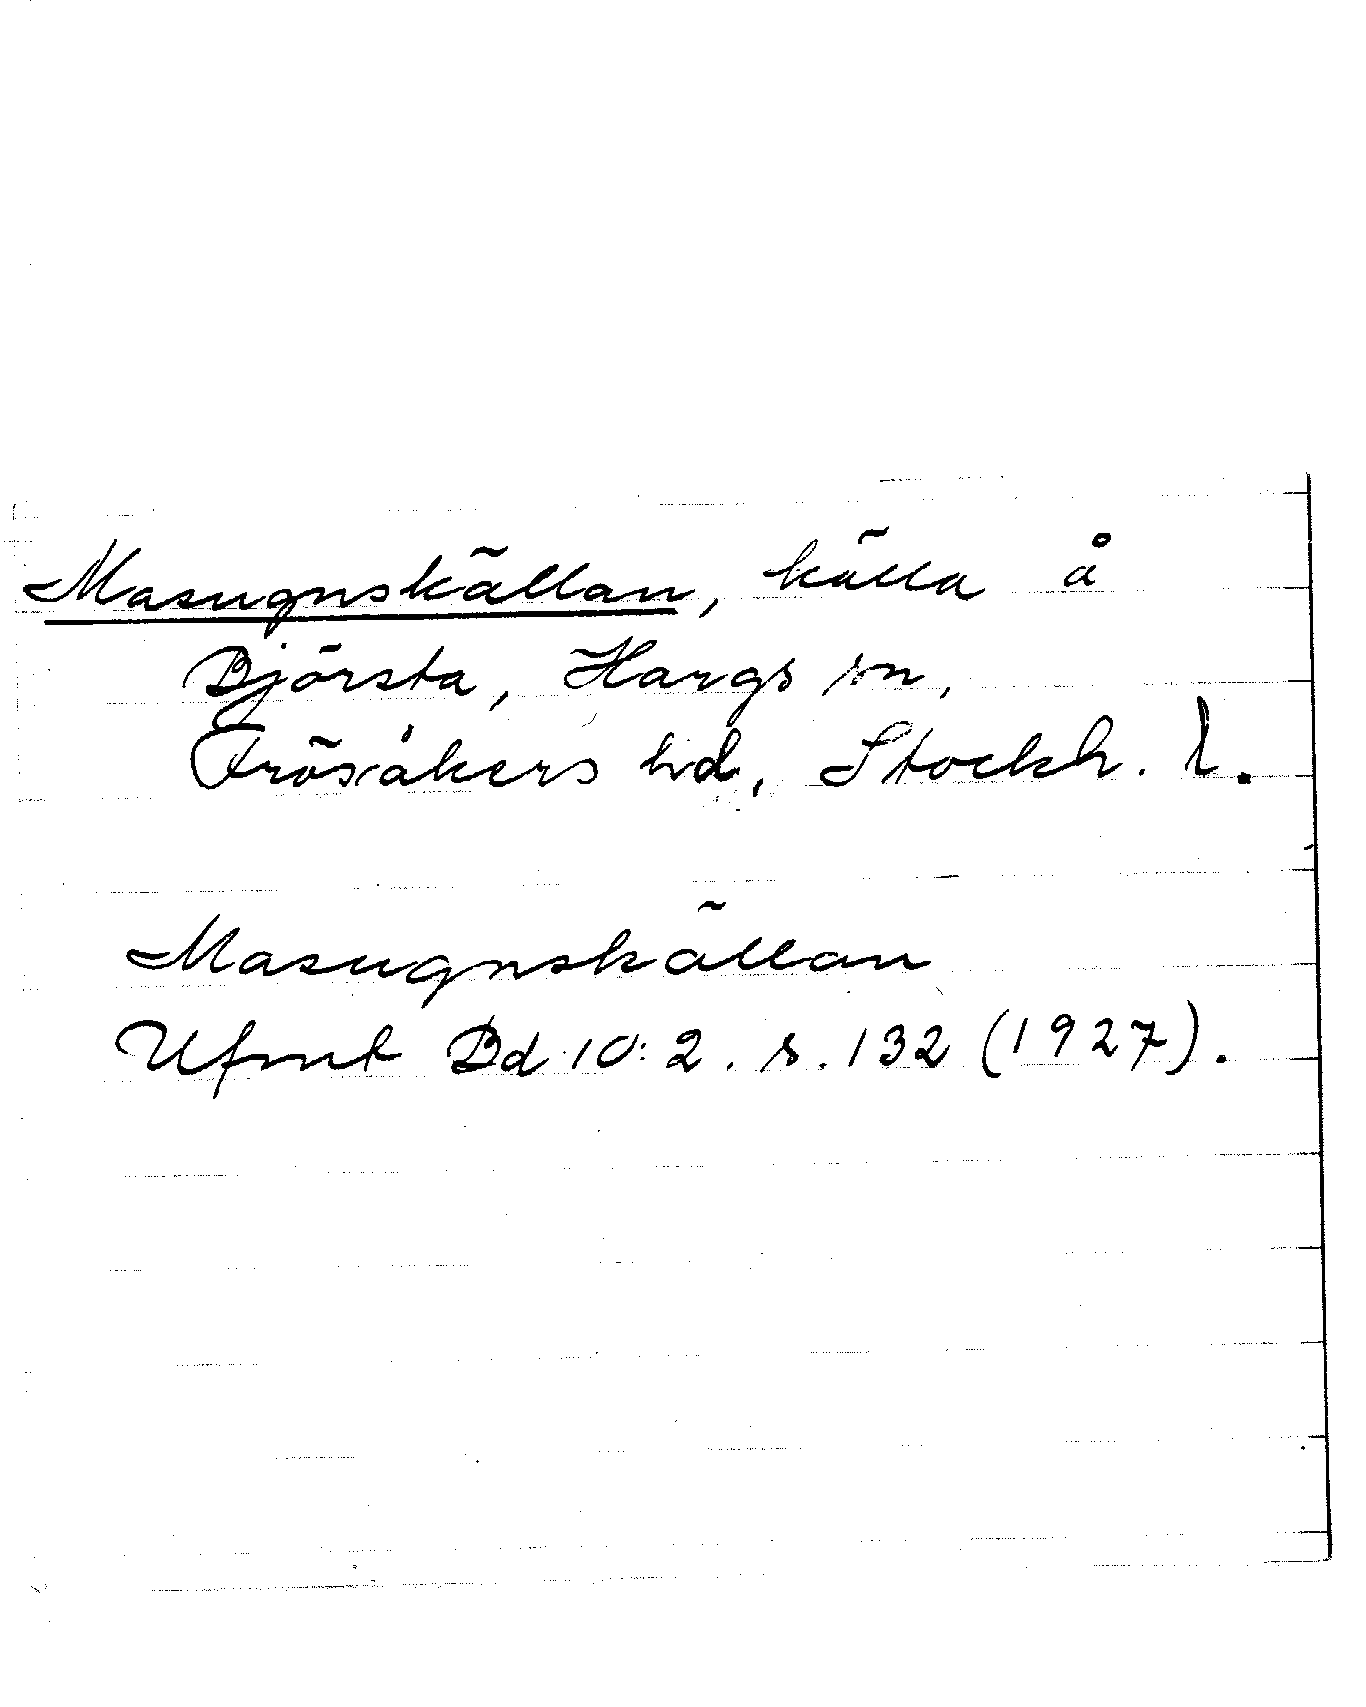 Masugnskällan, källa å
Björsta, Hargs sn,
Frösåkers hd, Stockh. l.
Masugnskällan
Ufmt Bd 10:2. s. 132 (1927).